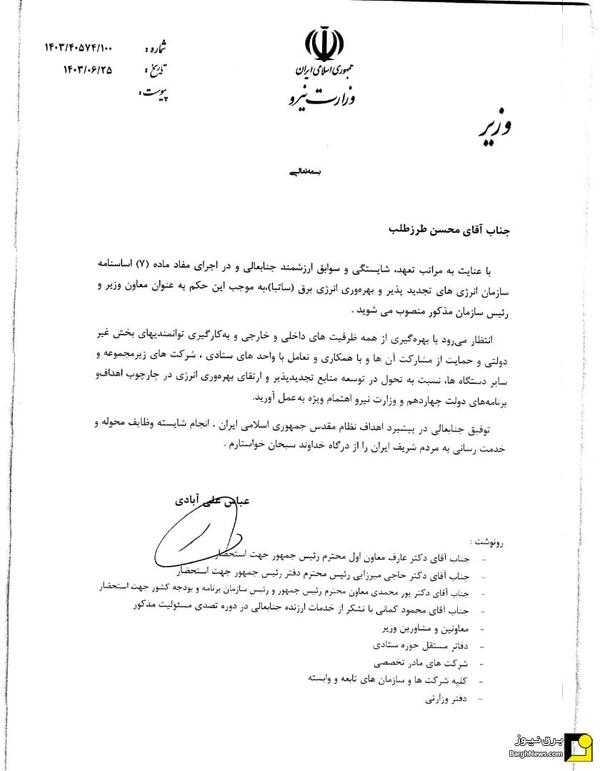 جمهوری اسلامی ایران
وزارت نیرو
وزیر
شماره : ۱۴۰۳/۴۰۵۷۴/۱۰۰
تاریخ : ۱۴۰۳/۰۶/۲۵
پیوست :
بسمه‌تعالی
جناب آقای محسن طرزطلب
با عنایت به مراتب تعهد، شایستگی و سوابق ارزشمند جنابعالی و در اجرای مفاد ماده (۷) اساسنامه
سازمان انرژی های تجدید پذیر و بهره‌وری انرژی برق (ساتبا)،به موجب این حکم به عنوان معاون وزیر و
رئیس سازمان مذکور منصوب می شوید .
انتظار می‌رود با بهره‌گیری از همه ظرفیت های داخلی و خارجی و به‌کارگیری توانمندیهای بخش غیر
دولتی و حمایت از مشارکت آن ها و با همکاری و تعامل با واحد های ستادی ، شرکت های زیرمجموعه و
سایر دستگاه ها، نسبت به تحول در توسعه منابع تجدیدپذیر و ارتقای بهره‌وری انرژی در چارچوب اهداف‌و
برنامه‌های دولت چهاردهم و وزارت نیرو اهتمام ویژه به‌عمل آورید.
توفیق جنابعالی در پیشبرد اهداف نظام مقدس جمهوری اسلامی ایران ، انجام شایسته وظایف محوله و
خدمت رسانی به مردم شریف ایران را از درگاه خداوند سبحان خواستارم .
عباس علی آبادی
رونوشت :
- جناب آقای دکتر عارف معاون اول محترم رئیس جمهور جهت استحضار
- جناب آقای دکتر حاجی میرزایی رئیس محترم دفتر رئیس جمهور جهت استحضار
- جناب آقای دکتر پور محمدی معاون محترم رئیس جمهور و رئیس سازمان برنامه و بودجه کشور جهت استحضار
- جناب آقای محمود کمانی با تشکر از خدمات ارزنده جنابعالی در دوره تصدی مسئولیت مذکور
- معاونین و مشاورین وزیر
- دفاتر مستقل حوزه ستادی
- شرکت های مادر تخصصی
- کلیه شرکت ها و سازمان های تابعه و وابسته
- دفتر وزارتی
برق نیوز
BarghNews.com